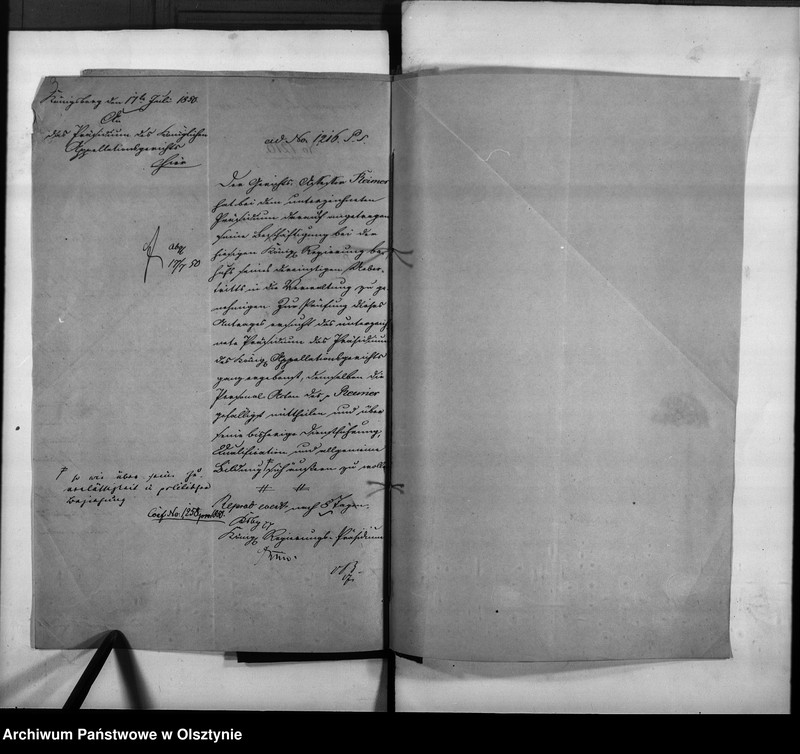 Königsberg den 17ten Juli 1850.
An
das Präsidium des Königlichen
Appellationsgerichts
Hier
ad No. 1216. P. S.
Der Gerichts-Assessor Reimer
hat bei dem unterzeichneten
Präsidium darauf angetragen
seine Beschäftigung bei der
hiesigen Königl Regierung be-
hufs seines dereinstigen Ueber-
tritts in die Verwaltung zu ge-
nehmigen. Zur Prüfung dieses
Antrages ersucht das unterzeich-
nete Präsidium das Präsidium
des Königl Appellationsgerichts
ganz ergebenst, demselben die
Personal-Akten des p Reimer
gefälligst mittheilen und über
seine bisherige Dienstführung,
Qualification und allgemeine
Bildung sich äußern zu wollen
abg
17/7 50
so wie über seine Zu-
verlässigkeit in politischer
Beziehung
Conf. No. 1258
nach 8 Tagen.
Kbg
Königl Regierungs-Präsidium
Archiwum Państwowe w Olsztynie